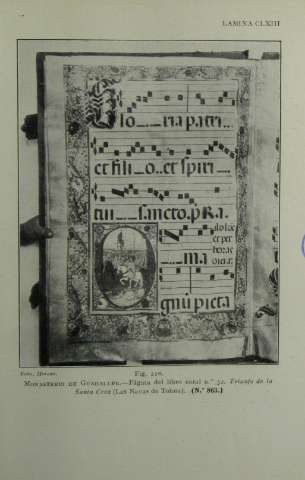 LAMINA CLXIII
Glo_ _ria patri..
et fili_ o. et spiri_
tui _ _ sancto. pRa.
ma
qui pieta
Fig. 220.
MONASTERIO DE GUADALUPE.—Página del libro coral n.º 32. Triunfo de la
Santa Cruz (Las Navas de Tolosa). (N.º 863.)